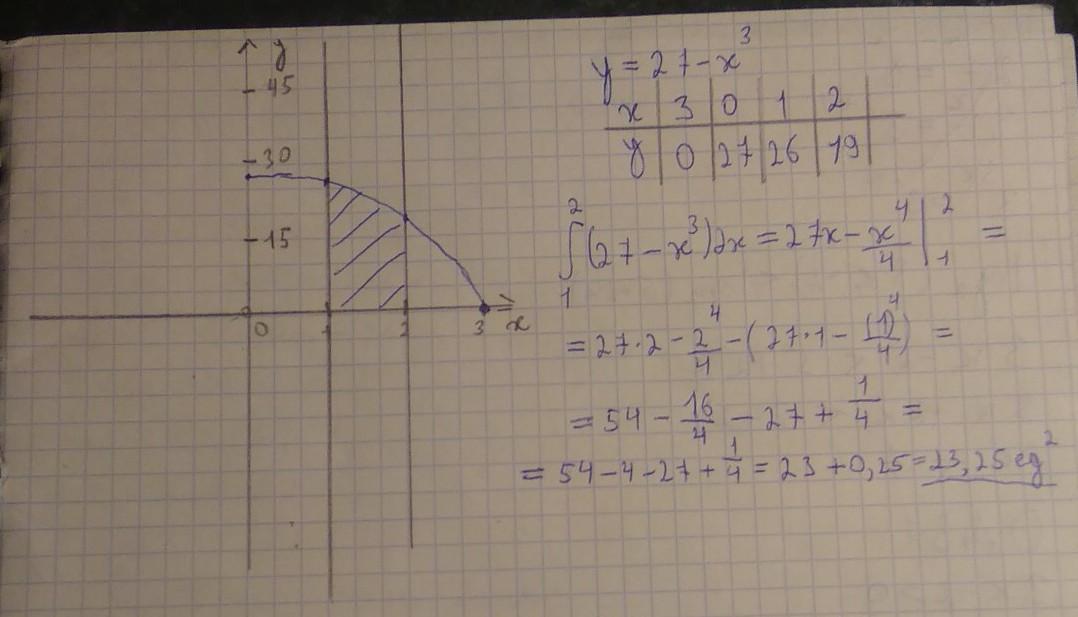 y
45
30
15
0 1 2 3 x
y = 27 - x³
x | 3 | 0 | 1 | 2 |
y | 0 | 27 | 26 | 19 |
∫₁² (27 - x³) dx = 27x - x⁴/4 |₁² =
= 27·2 - 2⁴/4 - (27·1 - (1)⁴/4) =
= 54 - 16/4 - 27 + 1/4 =
= 54 - 4 - 27 + 1/4 = 23 + 0,25 = 23,25 eg²